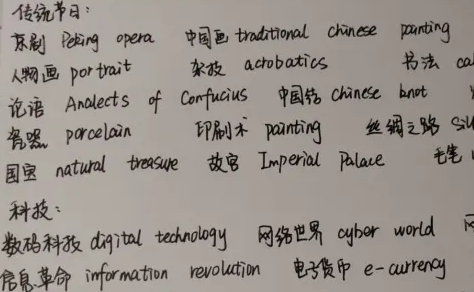 传统节日:
京剧 Peking opera 中国画 traditional chinese painting
人物画 portrait 杂技 acrobatics 书法
论语 Analects of Confucius 中国结 chinese knot
瓷器 porcelain 印刷术 painting 丝绸之路
国宝 natural treasure 故宫 Imperial Palace 毛笔
科技:
数码科技 digital technology 网络世界 cyber world 网
信息革命 information revolution 电子货币 e-currency